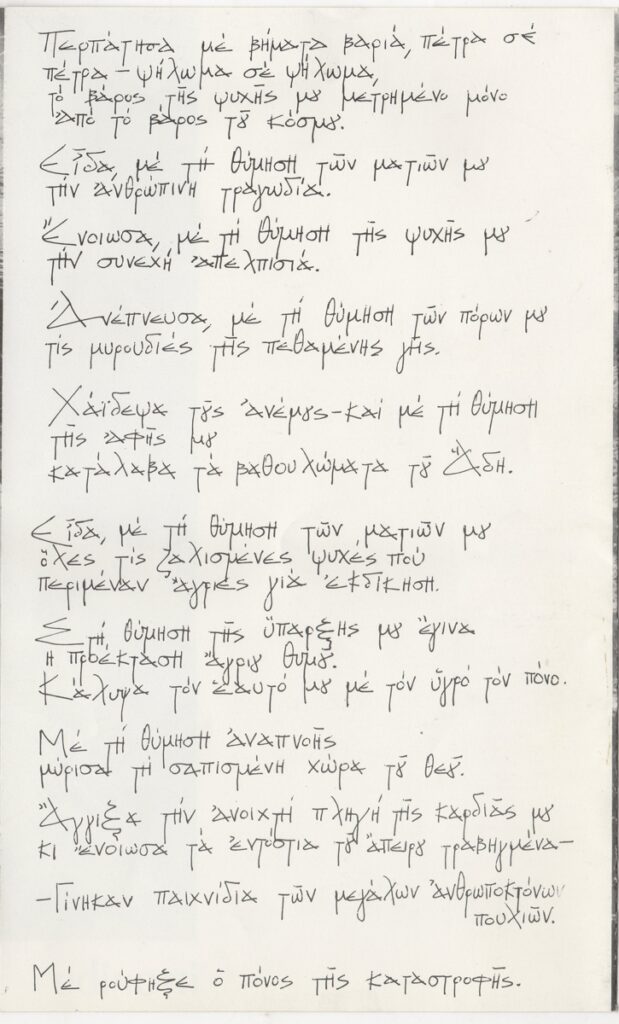 Περπάτησα μέ βήματα βαριά, πέτρα σέ
πέτρα – ψήλωμα σέ ψήλωμα,
τό βάρος τῆς ψυχῆς μου μετρημένο μόνο
ἀπό τό βάρος τοῦ κόσμου.
Εἶδα, μέ τή θύμηση τῶν ματιῶν μου
τήν ἀνθρώπινη τραγωδία.
Ἔνοιωσα, μέ τή θύμηση τῆς ψυχῆς μου
τήν συνεχή ἀπελπισιά.
Ἀνέπνευσα, μέ τή θύμηση τῶν πόρων μου
τίς μυρουδιές τῆς πεθαμένης γῆς.
Χάϊδεψα τούς ἀνέμους – καί μέ τή θύμηση
τῆς ἀφῆς μου
κατάλαβα τά βαθουλώματα τοῦ Ἅδη.
Εἶδα, μέ τή θύμηση τῶν ματιῶν μου
ὅλες τίς ζαλισμένες ψυχές πού
περιμέναν ἄγριες γιά ἐκδίκηση.
Στή θύμηση τῆς ὕπαρξης μου ἔγινα
ἡ προέκταση ἄγριου θυμοῦ.
Κάλυψα τόν ἑαυτό μου μέ τόν ὑγρό τόν πόνο.
Μέ τή θύμηση ἀναπνοῆς
μύρισα τή σαπισμένη χώρα τοῦ θεοῦ.
Ἄγγιξα τήν ἀνοιχτή πληγή τῆς καρδιᾶς μου
κι ἔνοιωσα τά ἐντόστια τοῦ ἄπειρου τραβηγμένα –
– Γίνηκαν παιχνίδια τῶν μεγάλων ἀνθρωποκτόνων
πουλιῶν.
Μέ ρούφηξε ὁ πόνος τῆς καταστροφῆς.